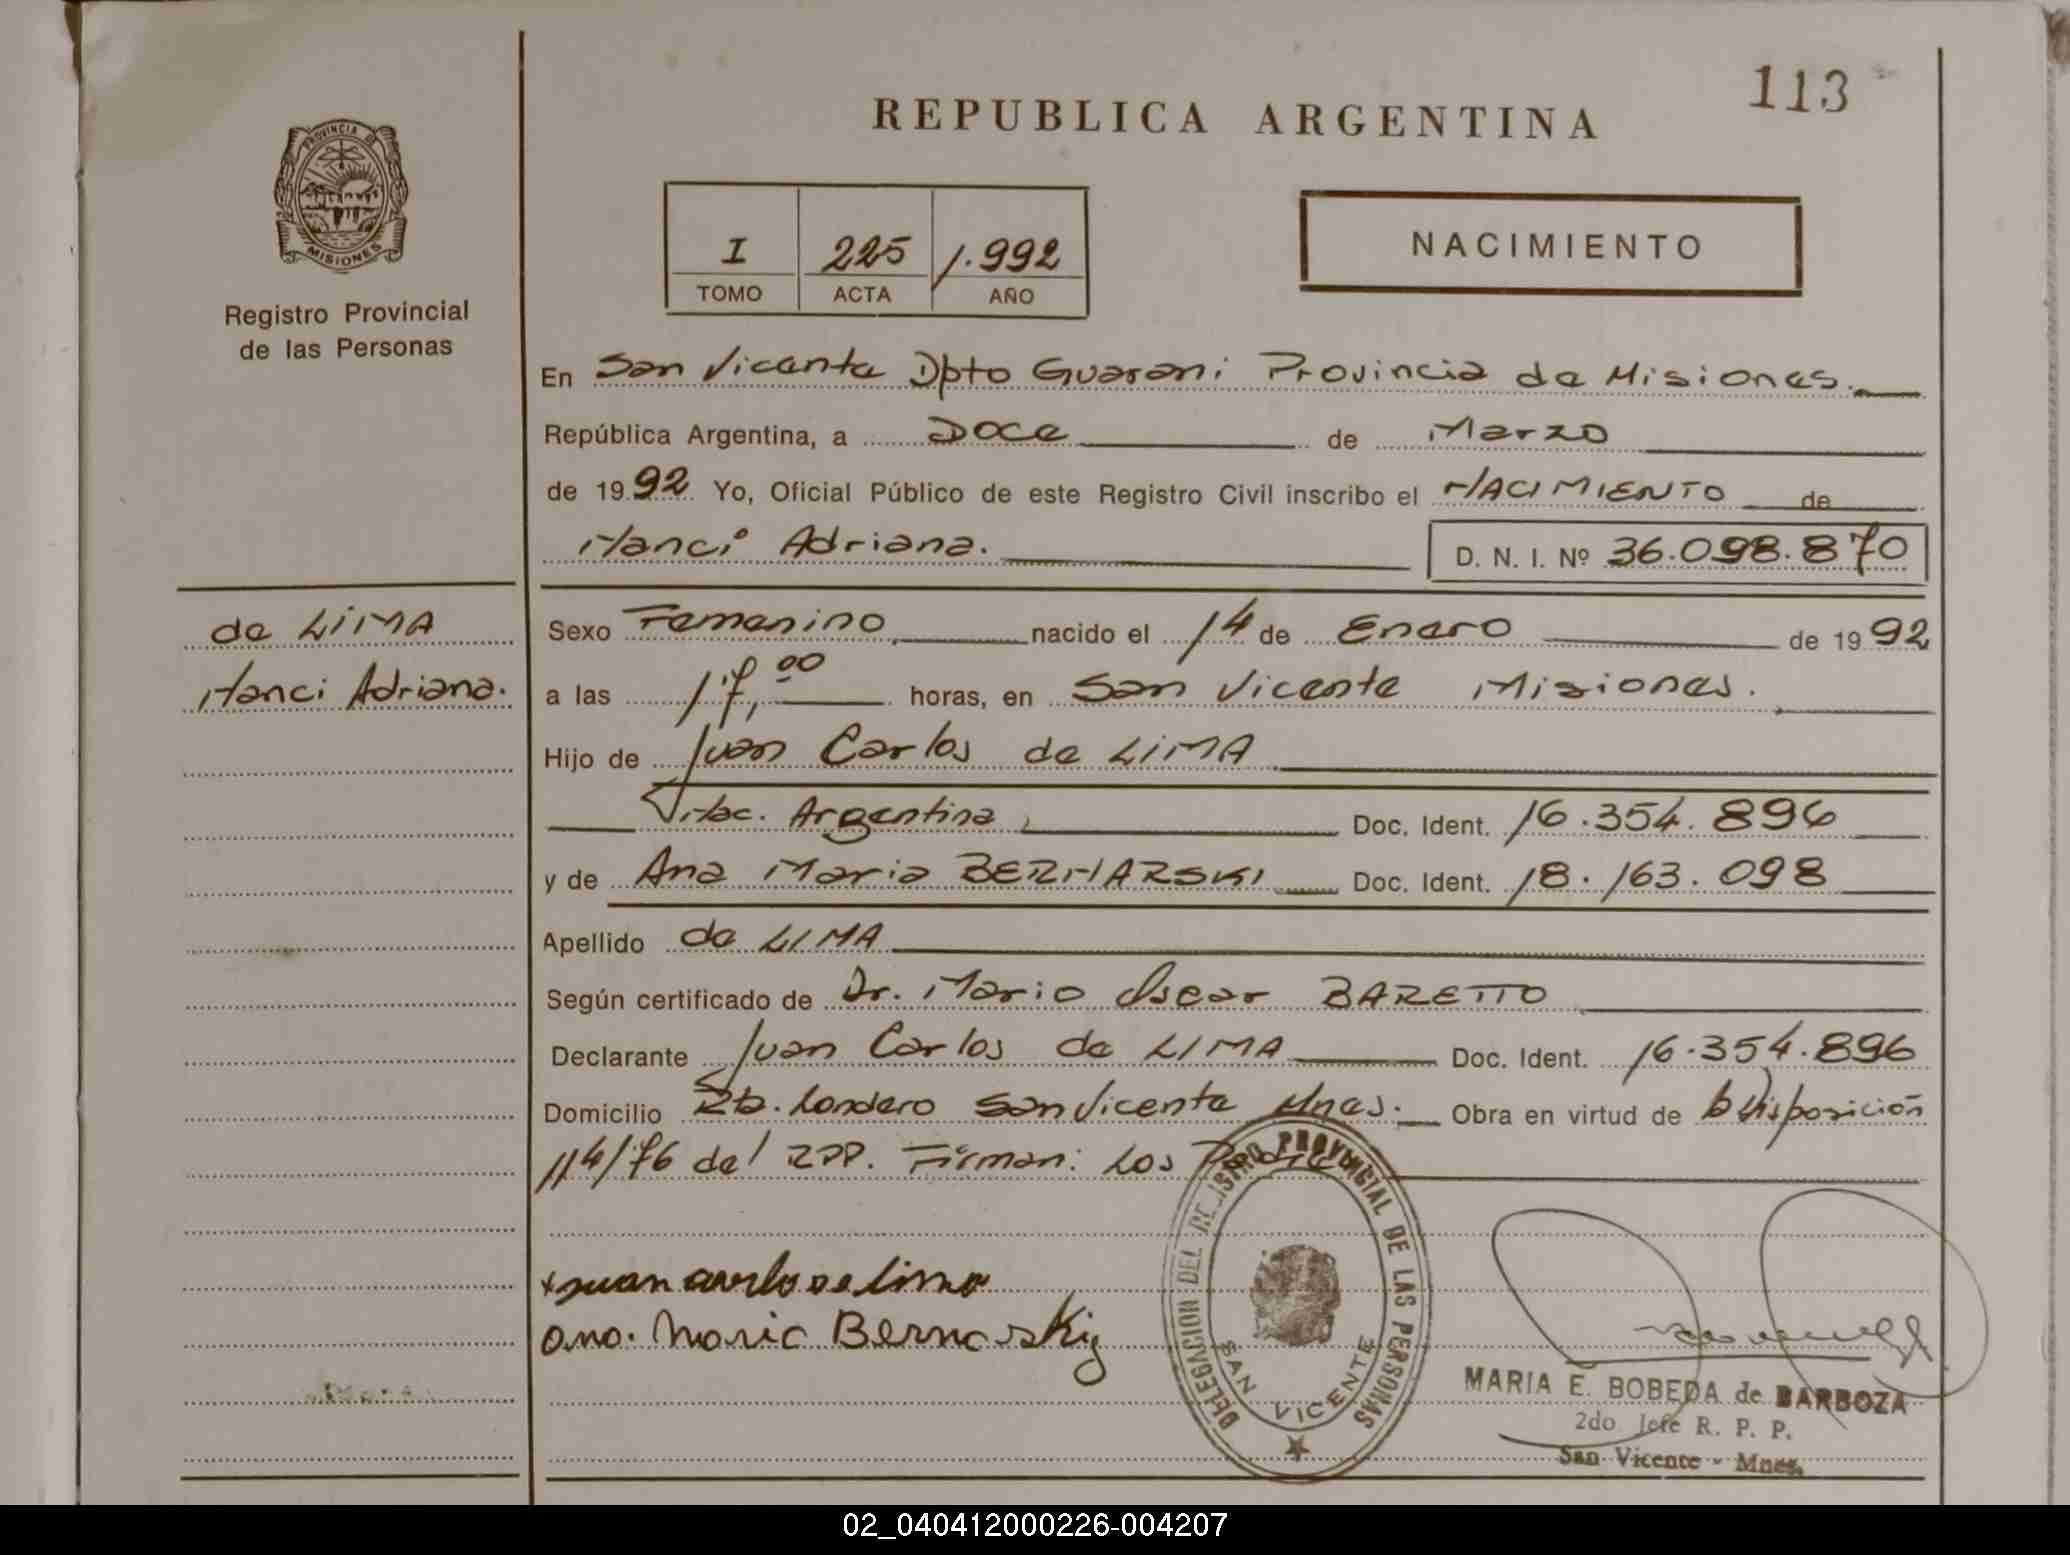 113
REPUBLICA ARGENTINA
PROVINCIA DE
MISIONES
Registro Provincial
de las Personas
I 225 1.992
TOMO ACTA AÑO
NACIMIENTO
En San Vicente Dpto Guarani Provincia de Misiones.
República Argentina, a Doce de Marzo
de 1992 Yo, Oficial Público de este Registro Civil inscribo el NACIMIENTO de
Nanci Adriana. D. N. I. Nº 36.098.870
de LIMA
Nanci Adriana.
Sexo Femenino nacido el 14 de Enero de 1992
a las 17,00 horas, en San Vicente Misiones.
Hijo de Juan Carlos de LIMA
Nac. Argentina Doc. Ident. 16.354.896
y de Ana Maria BERNARSKI Doc. Ident. 18.163.098
Apellido de LIMA
Según certificado de Dr. Mario Oscar BARETTO
Declarante Juan Carlos de LIMA Doc. Ident. 16.354.896
Domicilio Rto. Londero San Vicente Mnes. Obra en virtud de Disposición
114/76 del RPP. Firman: Los
Juan carlos de lima
ana. Maria Bernarskig
DELEGACION DEL REGISTRO PROVINCIAL DE LAS PERSONAS
SAN VICENTE
MARIA E. BOBEDA de BARBOZA
2do Jefe R. P. P.
San Vicente - Mnes.
02_040412000226-004207